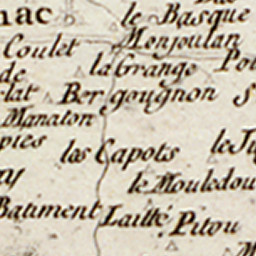 nac le Basque
Coulet Monjoulan
de la Grange Pou
lat Bergougnon
Manaton
pies las Capots le Ju
ay le Mouledou
Batiment Laillé Pitou